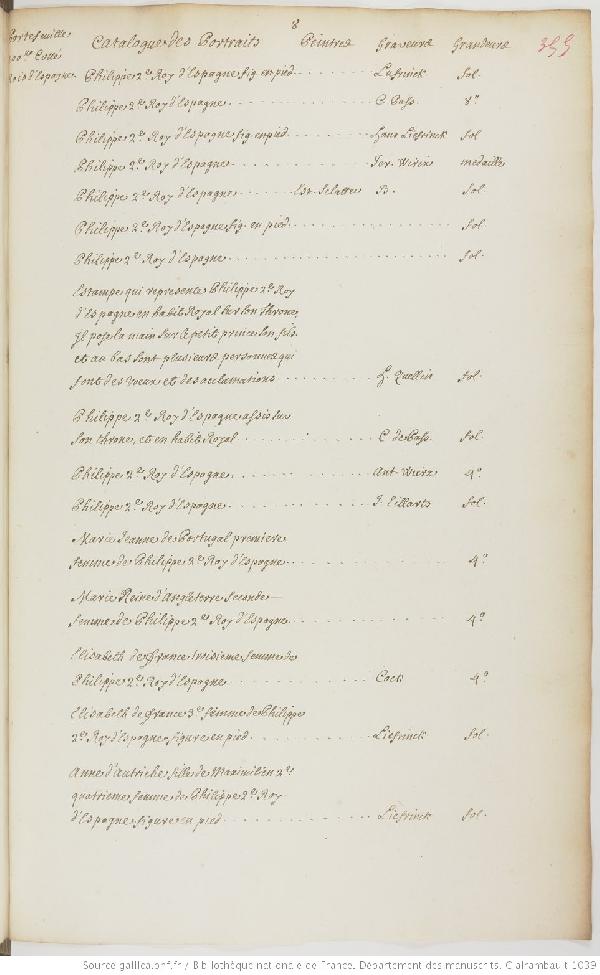 8
Portefeuille
Catalogue des Portraits Peintres Graveurs Grandeurs 355
Rois d'Espagne
Philippe 2e Roy d'Espagne fig en pied Liefrinck fol.
Philippe 2e Roy d'Espagne C Pass. 8º
Philippe 2e Roy d'Espagne fig en pied Hans Liefrinck fol
Philippe 2e Roy d'Espagne Jer. Wirix medaille
Philippe 2e Roy d'Espagne B. fol.
Philippe 2e Roy d'Espagne fig. en pied fol
Philippe 2e Roy d'Espagne fol.
Estampe qui represente Philippe 2e Roy
d'Espagne en habit Royal sur son throne,
Il pose la main sur le petit prince son fils.
et au bas sont plusieurs personnes qui
font des vœux et des acclamations Quellin fol.
Philippe 2e Roy d'Espagne assis sur
son throne, et en habit Royal C de Pass. fol.
Philippe 2e Roy d'Espagne Ant Wierx 4º
Philippe 2e Roy d'Espagne J. Eillarts fol.
Marie Jeanne de Portugal premiere
femme de Philippe 2e Roy d'Espagne 4º
Marie Reine d'Angleterre seconde
femme de Philippe 2e Roy d'Espagne 4º
Elisabeth de france troisieme femme de
Philippe 2e Roy d'Espagne Cock 4º
Elisabeth de france 3e femme de Philippe
2e Roy d'Espagne figure en pied Liefrinck fol.
Anne d'autriche fille de Maximilien 2e
quatrieme femme de Philippe 2e Roy
d'Espagne figure en pied Liefrinck fol.
Source gallica.bnf.fr / Bibliothèque nationale de France. Département des manuscrits. Clairambault 1039